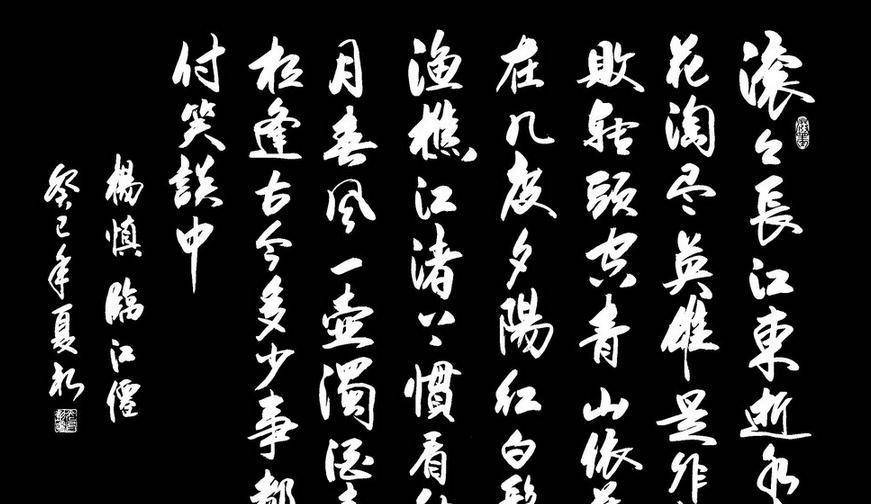 滚々長江東逝水
花淘尽英雄是非
敗转頭空青山依
在几度夕陽红白髮
渔樵江渚上慣看秋
月春風一壺濁酒
相逢古今多少事都
付笑談中
楊慎臨江僊
癸巳年夏